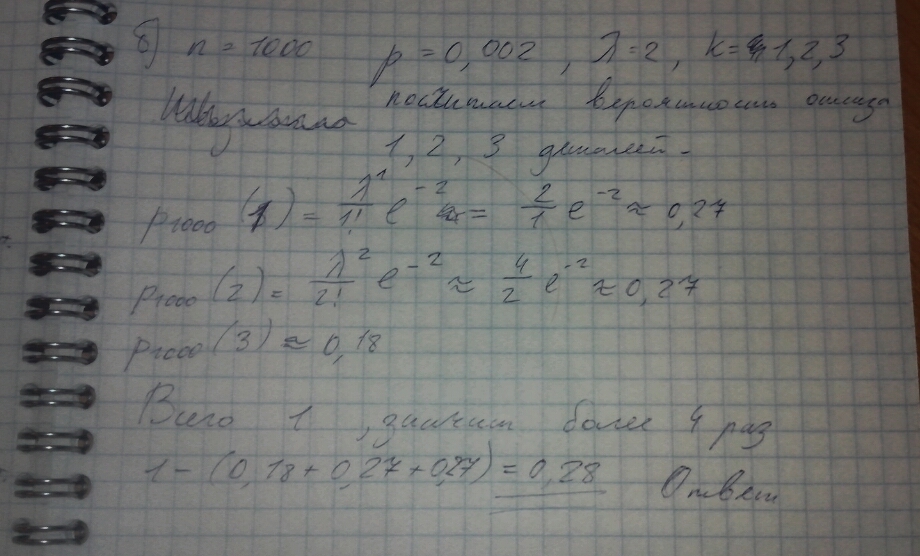 б) n = 1000 p = 0,002 , λ = 2 , k = 1, 2, 3
посчитаем вероятность отказа
1, 2, 3 деталей -
P1000 (1) = λ^1/1! e^-2 = 2/1 e^-2 ≈ 0,27
P1000 (2) = λ^2/2! e^-2 ≈ 4/2 e^-2 ≈ 0,27
P1000 (3) ≈ 0,18
Всего 1 , значит более 4 раз
1 - (0,18 + 0,27 + 0,27) = 0,28 Ответ